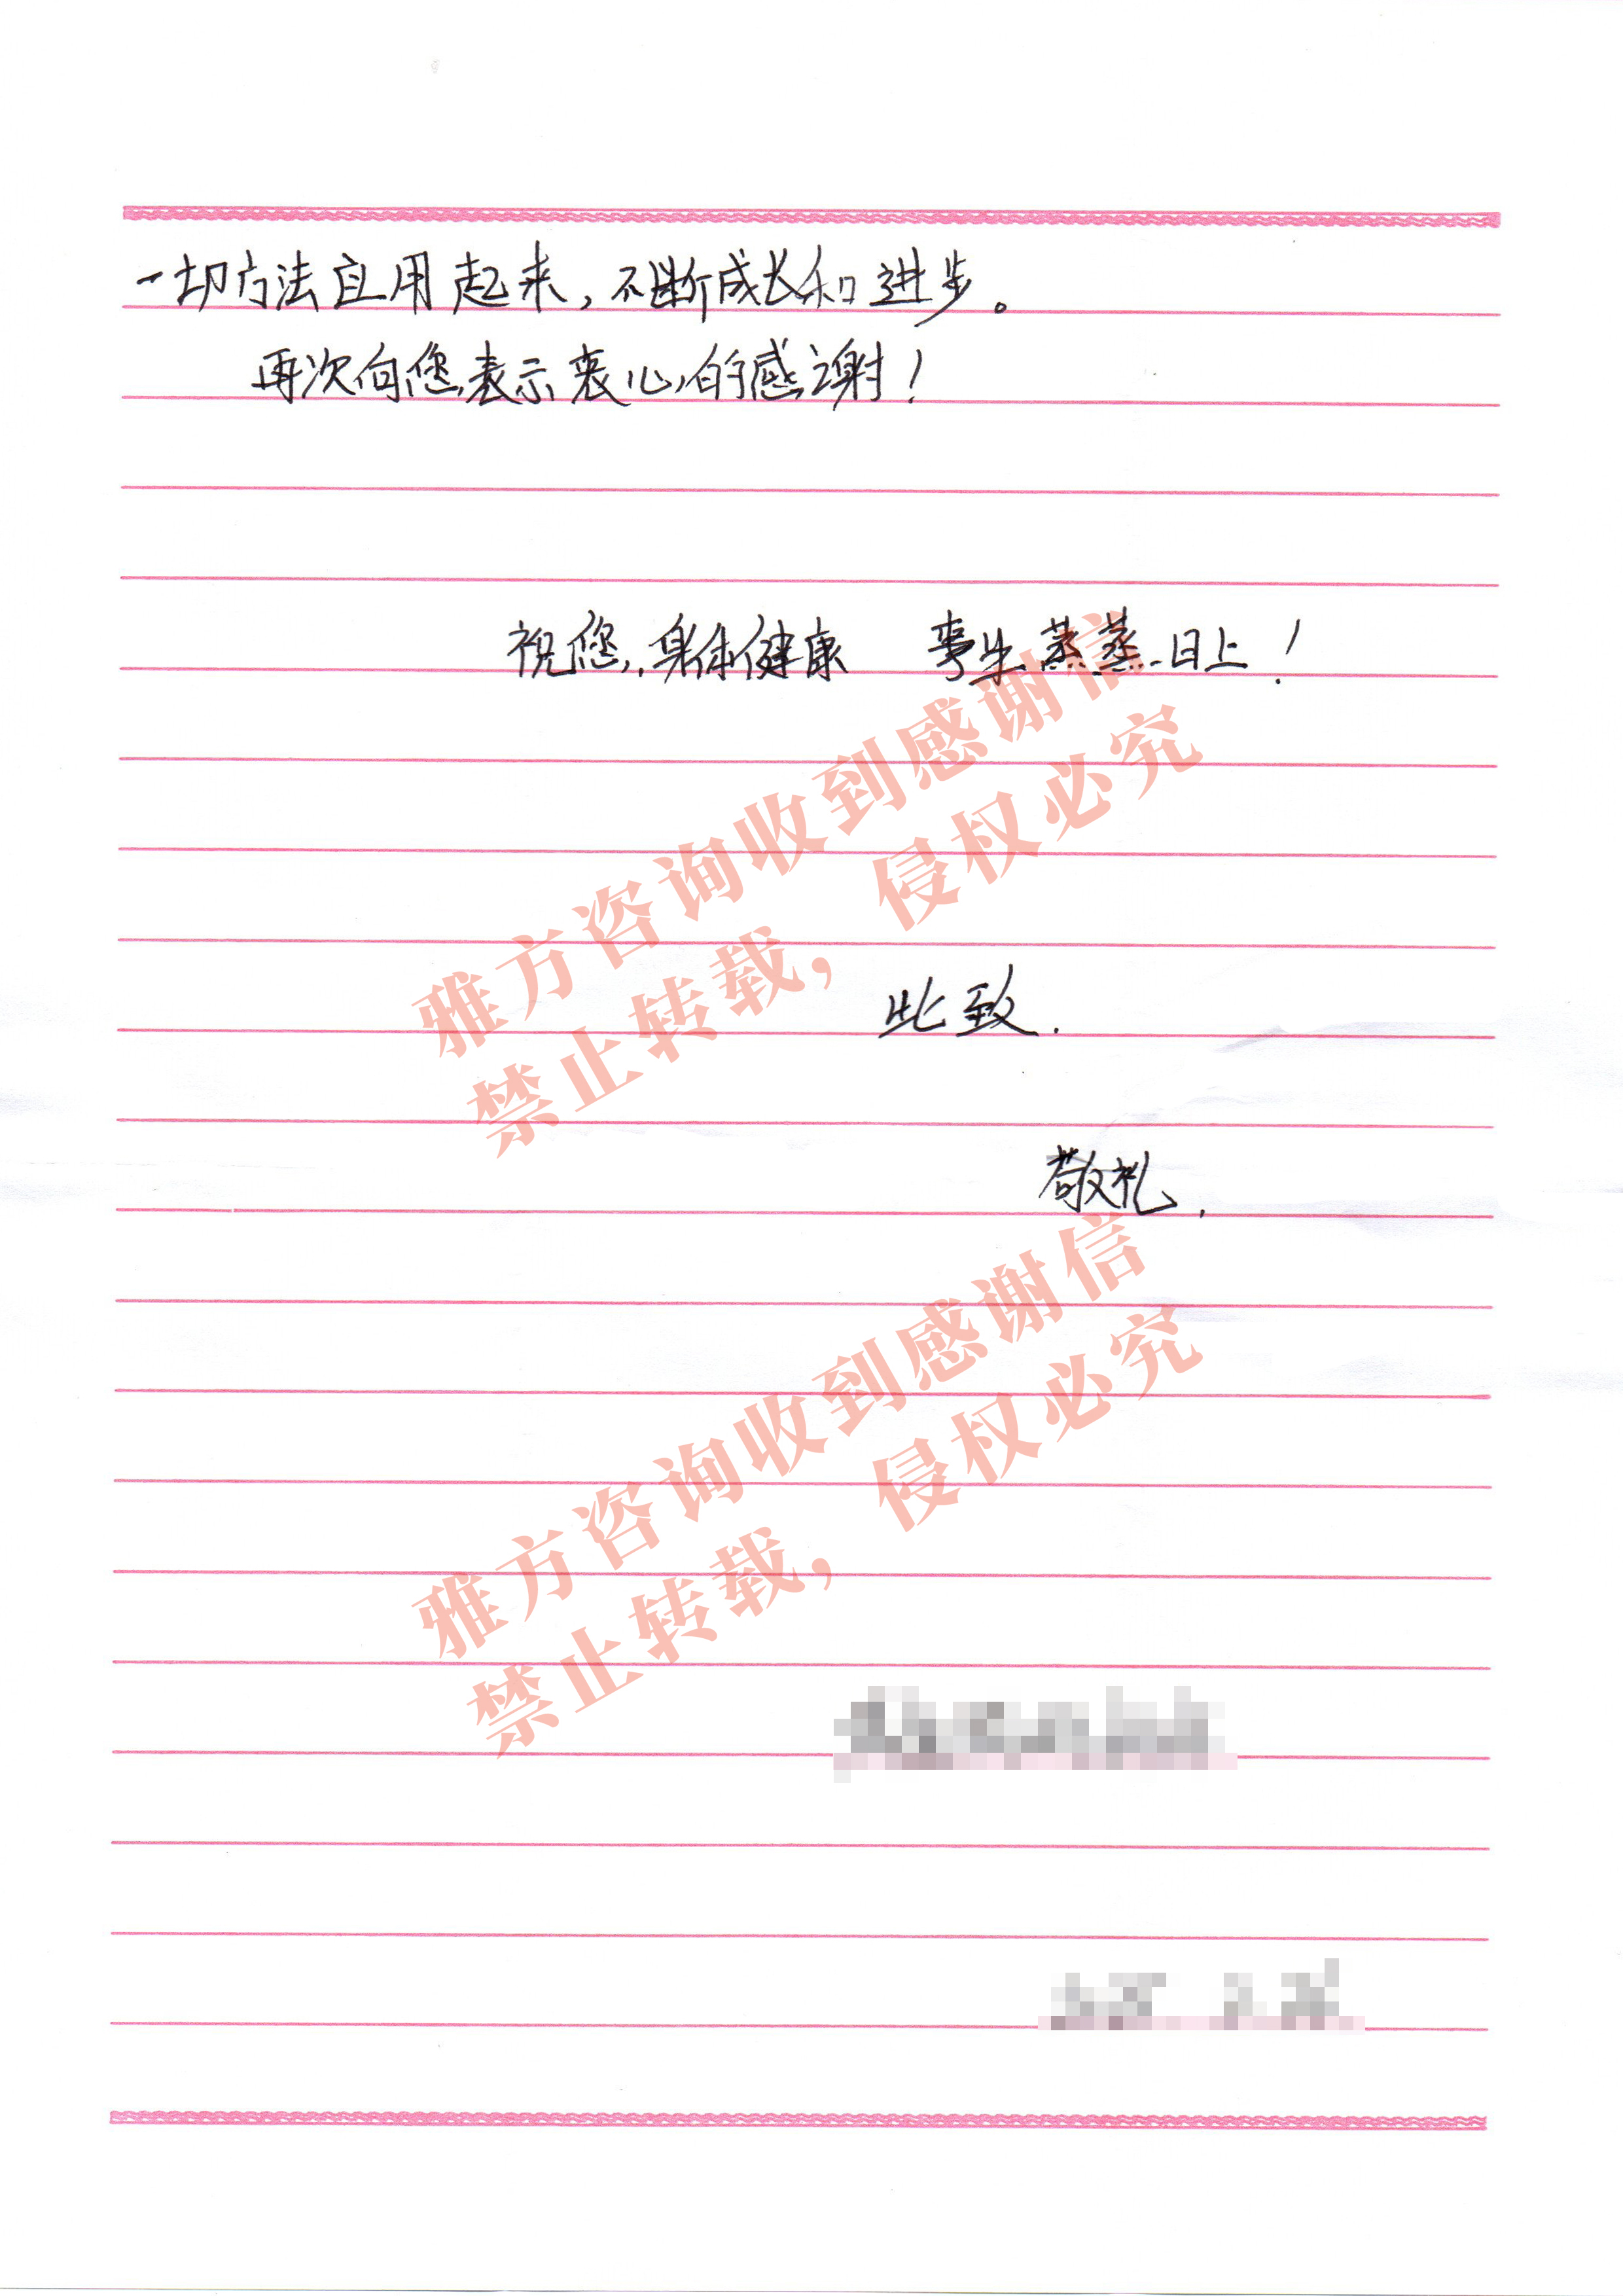 一切方法应用起来，不断成长和进步。
再次向您表示衷心的感谢！
祝您，身体健康 事生蒸蒸日上！
雅方咨询收到感谢信
禁止转载，侵权必究
此致.
敬礼.
雅方咨询收到感谢信
禁止转载，侵权必究